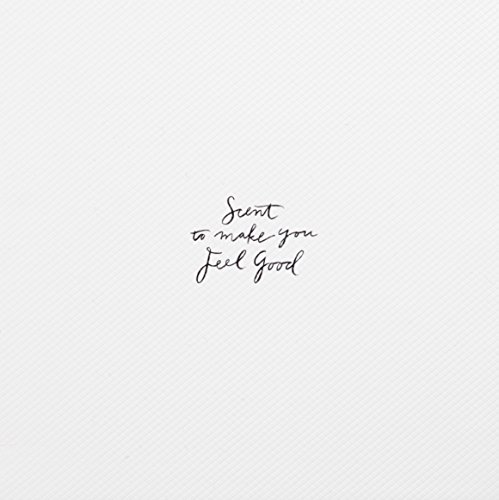 Scent
to make you
Feel Good